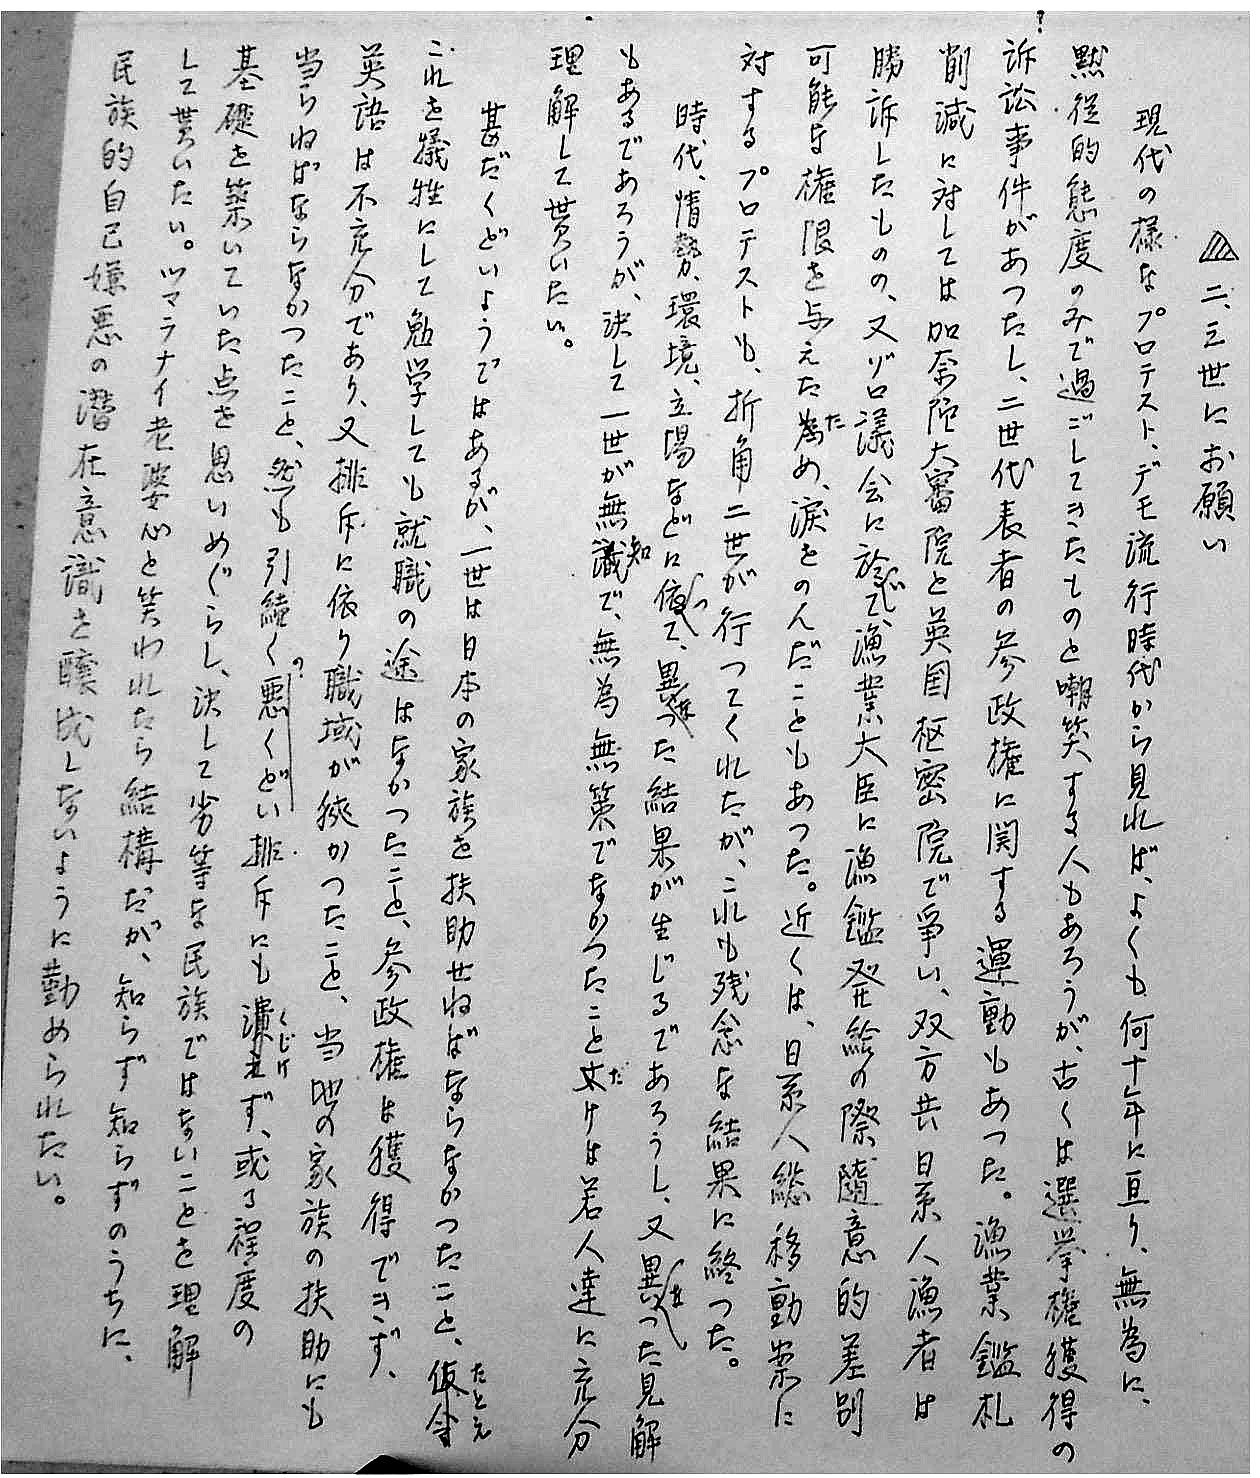 二、三世にお願い
現代の様なプロテスト、デモ流行時代から見れば、よくも何十年に亘り、無為に、
黙従的態度のみで過ごしてきたものと嘲笑する人もあろうが、古くは選挙権獲得の
訴訟事件があつたし、二世代表者の参政権に関する運動もあつた。漁業鑑札
削減に対しては加奈陀大審院と英国枢密院で争い、双方共日系人漁者は
勝訴したものの、又ゾロ議会に於て漁業大臣に漁鑑発給の際随意的差別
可能な権限を与えた為め、涙をのんだこともあつた。近くは、日系人総移動案に
対するプロテストも、折角二世が行つてくれたが、これも残念な結果に終つた。
時代、情勢、環境、立場などに依つて、異つた結果が生じるであろうし、又異つた見解
もあるであろうが、決して一世が無知識で、無為無策でなかつたこと丈けは若人達に充分
理解して貰いたい。
甚だくどいようではあるが、一世は日本の家族を扶助せねばならなかつたこと、仮令
これを犠牲にして勉学しても就職の途はなかつたこと、参政権は獲得できず、
英語は不充分であり、又排斥に依り職域が狭かつたこと、当地の家族の扶助にも
当らねばならなかつたこと、然も引続く悪くどい排斥にも潰えず、或る程度の
基礎を築いていた点を思いめぐらし、決して劣等な民族ではないことを理解
して貰いたい。ツマラナイ老婆心と笑われたら結構だが、知らず知らずのうちに、
民族的自己嫌悪の潜在意識を醸成しないように勤められたい。